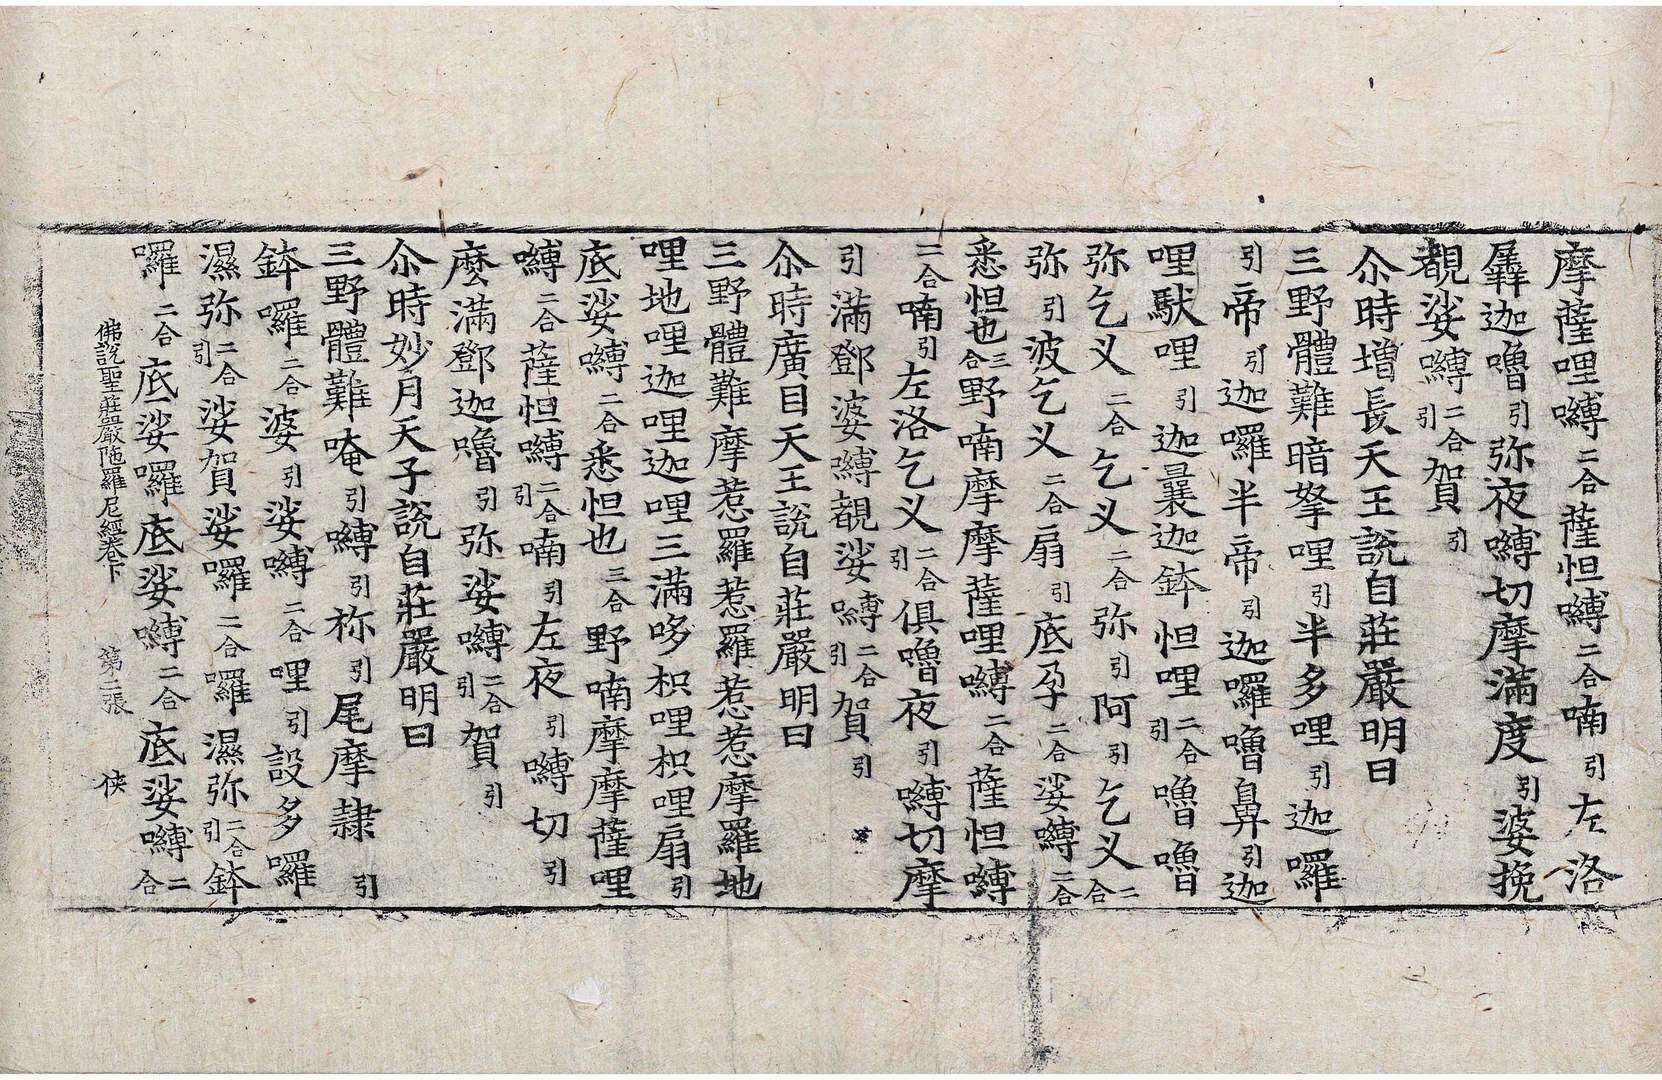 摩薩哩嚩二合薩怛嚩二合喃引左洛
羼迦嚕引弥夜嚩切摩滿度引婆挽
覩娑嚩二合引賀引
尒時增長天王說自莊嚴明曰
三野體難暗拏哩引半多哩引迦囉
引帝引迦囉半帝引迦囉嚕鼻引迦
哩馱哩引迦曩迦鉢怛哩二合引嚕嚕
弥乞义二合乞义二合弥引阿引乞义二合
弥引波乞义二合扇引底孕二合娑嚩二合
悉怛也三合野喃摩摩薩哩嚩二合薩怛嚩
二合喃引左洛乞义二合引俱嚕夜引嚩切摩
引滿鄧婆嚩覩娑嚩二合引賀引
尒時廣目天王說自莊嚴明曰
三野體難摩惹羅惹羅惹惹摩羅地
哩地哩迦哩迦哩三滿哆枳哩枳哩扇引
底娑嚩二合悉怛也三合野喃摩摩薩哩
嚩二合薩怛嚩二合引喃引左夜引嚩切引
麼滿鄧迦嚕引弥娑嚩二合引賀引
尒時妙月天子說自莊嚴明曰
三野體難唵引嚩引祢引尾摩隷引
鉢囉二合婆引娑嚩二合哩引設多囉
濕弥二合引娑賀娑囉二合囉濕弥二合引鉢
囉二合底娑囉底娑嚩二合底娑嚩二合
佛說聖莊嚴陁羅尼經卷下 第二張 俠